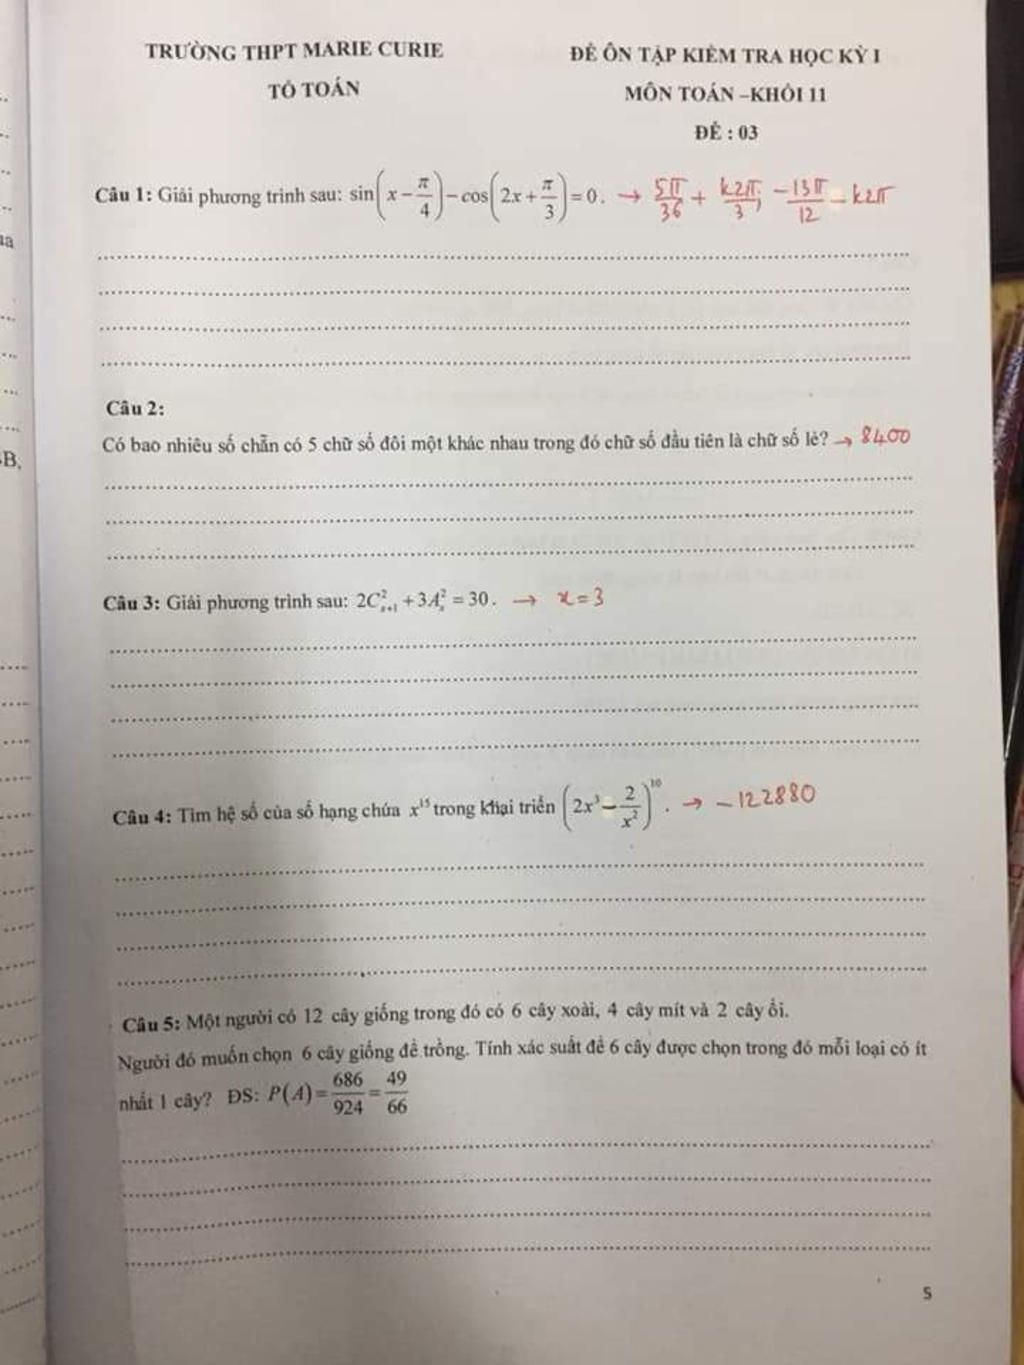 TRƯỜNG THPT MARIE CURIE
TỔ TOÁN
ĐỀ ÔN TẬP KIỂM TRA HỌC KỲ I
MÔN TOÁN –KHỐI 11
ĐỀ : 03
Câu 1: Giải phương trình sau: sin(x − π/4) − cos(2x + π/3) = 0. → 5π/36 + k2π/3; −13π/12 − k2π
Câu 2:
Có bao nhiêu số chẵn có 5 chữ số đôi một khác nhau trong đó chữ số đầu tiên là chữ số lẻ? → 8400
Câu 3: Giải phương trình sau: 2C²ₓ₊₁ + 3A²ₓ = 30. → x = 3
Câu 4: Tìm hệ số của số hạng chứa x¹⁵ trong khai triển (2x³ − 2/x²)¹⁰. → −122880
Câu 5: Một người có 12 cây giống trong đó có 6 cây xoài, 4 cây mít và 2 cây ổi.
Người đó muốn chọn 6 cây giống để trồng. Tính xác suất để 6 cây được chọn trong đó mỗi loại có ít
nhất 1 cây? ĐS: P(A) = 686/924 = 49/66
5
B,